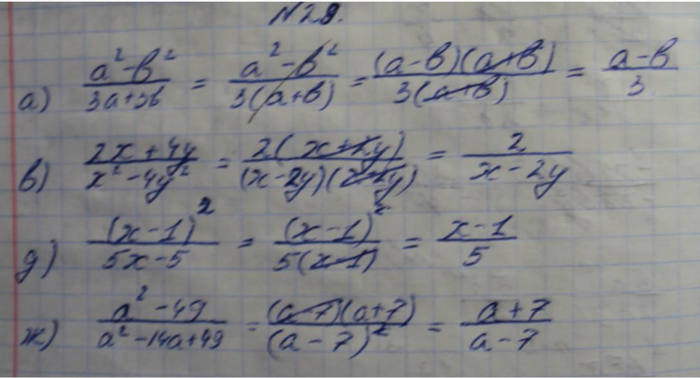 №28.
а) (a²-b²)/(3a+3b) = (a²-b²)/(3(a+b)) = ((a-b)(a+b))/(3(a+b)) = (a-b)/3
в) (2x+4y)/(x²-4y²) = (2(x+2y))/((x-2y)(x+2y)) = 2/(x-2y)
д) (x-1)²/(5x-5) = (x-1)²/(5(x-1)) = (x-1)/5
ж) (a²-49)/(a²-14a+49) = ((a-7)(a+7))/(a-7)² = (a+7)/(a-7)